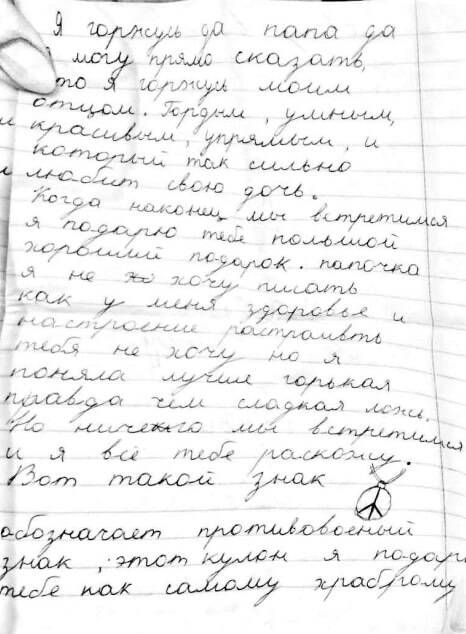 Я горжусь да папа да
Я могу прямо сказать,
что я горжусь моим
отцом. Гордым, умным,
и красивым, упрямым, и
который так сильно
и любит свою дочь.
Когда наконец мы встретимся
я подарю тебе польшой
хороший подарок. папочка
я не хочу писать
как у меня здоровье и
настроение растраивть
тебя не хочу но я
поняла лучше горькая
правда чем сладкая ложь.
Но ничего мы встретимся
и я всё тебе раскожу.
Вот такой знак
обозначает противовоеный
знак, этот кулон я подарю
тебе как самому храброму